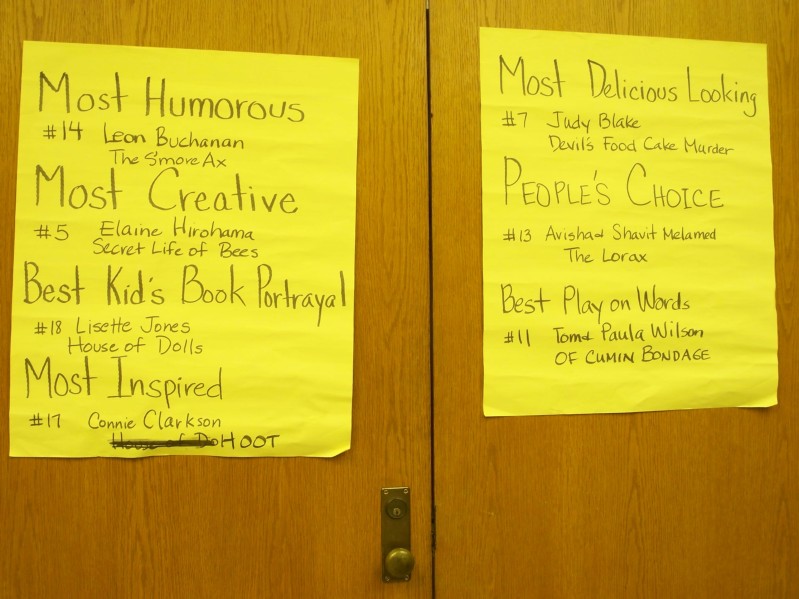 Most Humorous
#14 Leon Buchanan
The S'more Ax
Most Creative
#5 Elaine Hirohama
Secret Life of Bees
Best Kid's Book Portrayal
#18 Lisette Jones
House of Dolls
Most Inspired
#17 Connie Clarkson
House of Do HOOT
Most Delicious Looking
#7 Judy Blake
Devil's Food Cake Murder
PEOPLE'S CHOICE
#13 Avisha & Shavit Melamed
The Lorax
Best Play on Words
#11 Tom & Paula Wilson
OF CUMIN BONDAGE